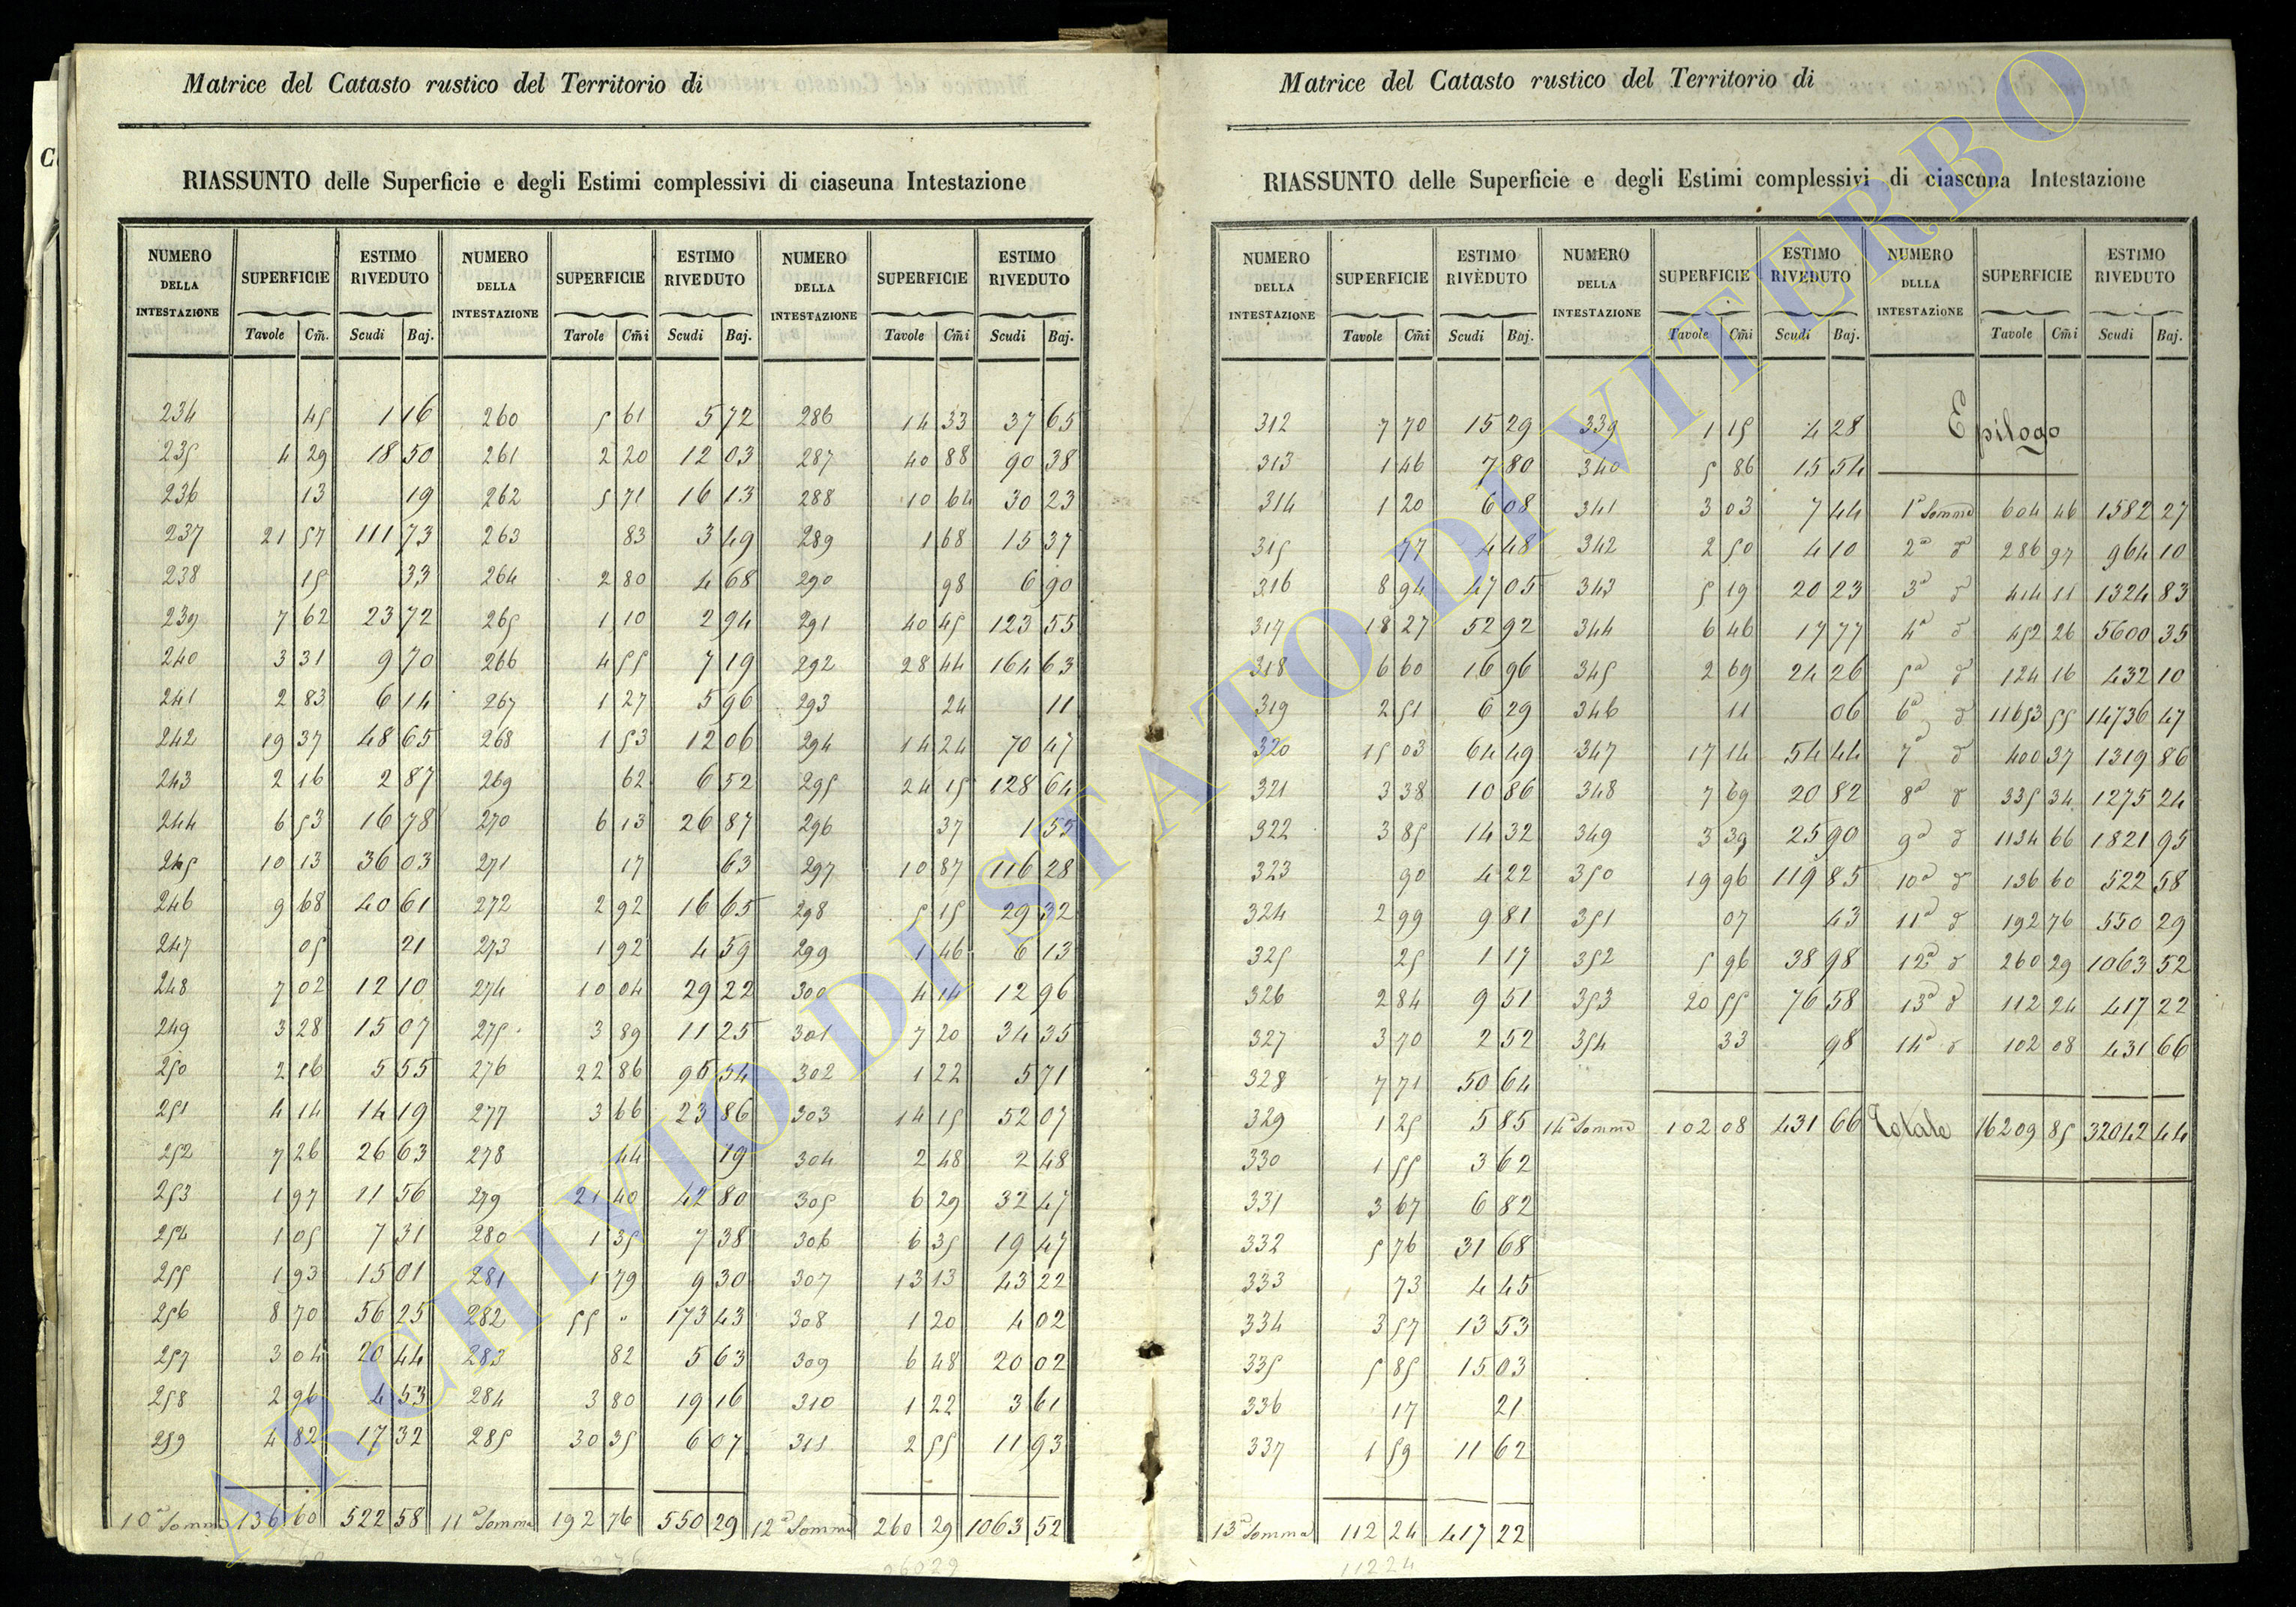 Matrice del Catasto rustico del Territorio di
RIASSUNTO delle Superficie e degli Estimi complessivi di ciaseuna Intestazione
NUMERO DELLA INTESTAZIONE SUPERFICIE ESTIMO RIVEDUTO NUMERO DELLA INTESTAZIONE SUPERFICIE ESTIMO RIVEDUTO NUMERO DELLA INTESTAZIONE SUPERFICIE ESTIMO RIVEDUTO
Tavole Cm̃. Scudi Baj. Tarole Cm̃i Scudi Baj. Tavole Cm̃i Scudi Baj.
234 45 1 16 260 5 61 5 72 286 14 33 37 65
235 4 29 18 50 261 2 20 12 03 287 40 88 90 38
236 13 19 262 5 71 16 13 288 10 64 30 23
237 21 57 111 73 263 83 3 49 289 1 68 15 37
238 15 33 264 2 80 4 68 290 98 6 90
239 7 62 23 72 265 1 10 2 94 291 40 45 123 55
240 3 31 9 70 266 4 55 7 19 292 28 44 164 63
241 2 83 6 14 267 1 27 5 96 293 24 11
242 19 37 48 65 268 1 53 12 06 294 14 24 70 47
243 2 16 2 87 269 62 6 52 295 24 15 128 64
244 6 53 16 78 270 6 13 26 87 296 37 1 55
245 10 13 36 03 271 17 63 297 10 87 116 28
246 9 68 40 61 272 2 92 16 65 298 5 15 29 32
247 05 21 273 1 92 4 59 299 1 46 6 13
248 7 02 12 10 274 10 04 29 22 300 4 14 12 96
249 3 28 15 07 275 3 89 11 25 301 7 20 34 35
250 2 16 5 55 276 22 86 95 54 302 1 22 5 71
251 4 14 14 19 277 3 66 23 86 303 14 15 52 07
252 7 26 26 63 278 44 19 304 2 48 2 48
253 1 97 11 56 279 21 40 42 80 305 6 29 32 47
254 1 05 7 31 280 1 35 7 38 306 6 35 19 47
255 1 93 15 01 281 1 79 9 30 307 13 13 43 22
256 8 70 56 25 282 55 " 173 43 308 1 20 4 02
257 3 04 20 44 283 82 5 63 309 6 48 20 02
258 2 96 4 53 284 3 80 19 16 310 1 22 3 61
259 4 82 17 32 285 30 35 6 07 311 2 55 11 93
10ª Somma 136 60 522 58 11ª Somma 192 76 550 29 12ª Somma 260 29 1063 52
26029
Matrice del Catasto rustico del Territorio di
RIASSUNTO delle Superficie e degli Estimi complessivi di ciascuna Intestazione
NUMERO DELLA INTESTAZIONE SUPERFICIE ESTIMO RIVEDUTO NUMERO DELLA INTESTAZIONE SUPERFICIE ESTIMO RIVEDUTO NUMERO DLLLA INTESTAZIONE SUPERFICIE ESTIMO RIVEDUTO
Tavole Cm̃i Scudi Baj. Tavole Cm̃i Scudi Baj. Tavole Cm̃i Scudi Baj.
312 7 70 15 29 339 1 15 4 28 Epilogo
313 1 46 7 80 340 5 86 15 54
314 1 20 6 08 341 3 03 7 44 1ª Somma 604 46 1582 27
315 77 4 48 342 2 50 4 10 2ª d 286 97 964 10
316 8 94 47 05 343 5 19 20 23 3ª d 414 11 1324 83
317 18 27 52 92 344 6 46 17 77 4ª d 452 26 5600 35
318 6 60 16 96 345 2 69 24 26 5ª d 124 16 432 10
319 2 51 6 29 346 11 06 6ª d 11653 55 14736 47
320 15 03 64 49 347 17 14 54 44 7ª d 400 37 1319 86
321 3 38 10 86 348 7 69 20 82 8ª d 335 34 1275 24
322 3 85 14 32 349 3 39 25 90 9ª d 1134 66 1821 95
323 90 4 22 350 19 96 119 85 10ª d 136 60 522 58
324 2 99 9 81 351 07 43 11ª d 192 76 550 29
325 25 1 17 352 5 96 38 98 12ª d 260 29 1063 52
326 2 84 9 51 353 20 55 76 58 13ª d 112 24 417 22
327 3 70 2 52 354 33 98 14ª d 102 08 431 66
328 7 71 50 64
329 1 25 5 85 14ª Somma 102 08 431 66 Totale 16209 85 32042 44
330 1 55 3 62
331 3 67 6 82
332 5 76 31 68
333 73 4 45
334 3 57 13 53
335 5 85 15 03
336 17 21
337 1 59 11 62
13ª Somma 112 24 417 22
11224
ARCHIVIO DI STATO DI VITERBO